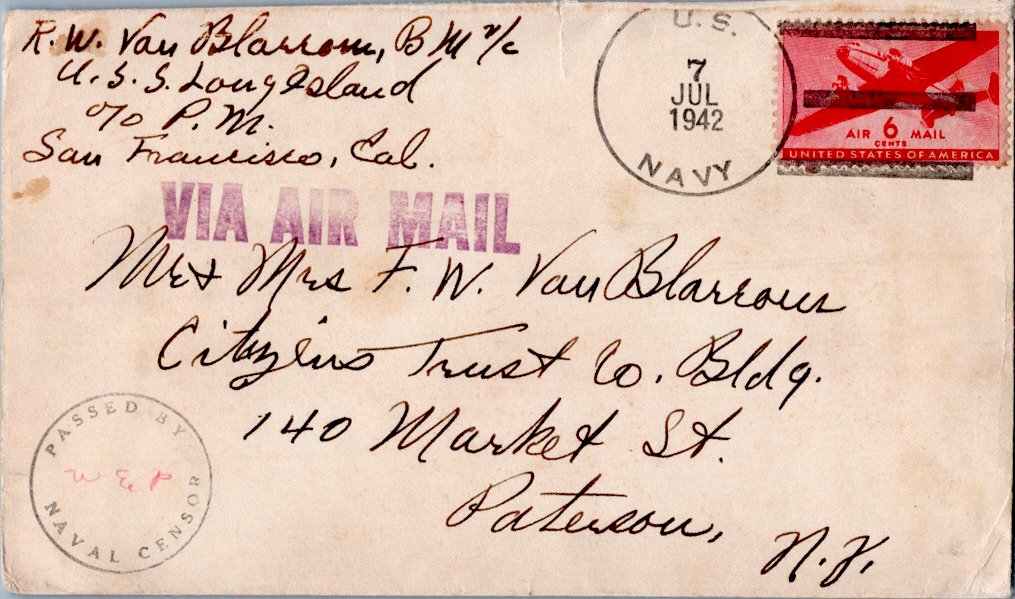 R. W. Van Blarcom, BM 2/c
U.S.S. Long Island
c/o P.M.
San Francisco, Cal.
U.S.
7
JUL
1942
NAVY
AIR 6 MAIL
CENTS
UNITED STATES OF AMERICA
VIA AIR MAIL
Mr + Mrs F. W. Van Blarcom
Citizens Trust Co. Bldg.
140 Market St.
Paterson,
N.J.
PASSED BY
NAVAL CENSOR